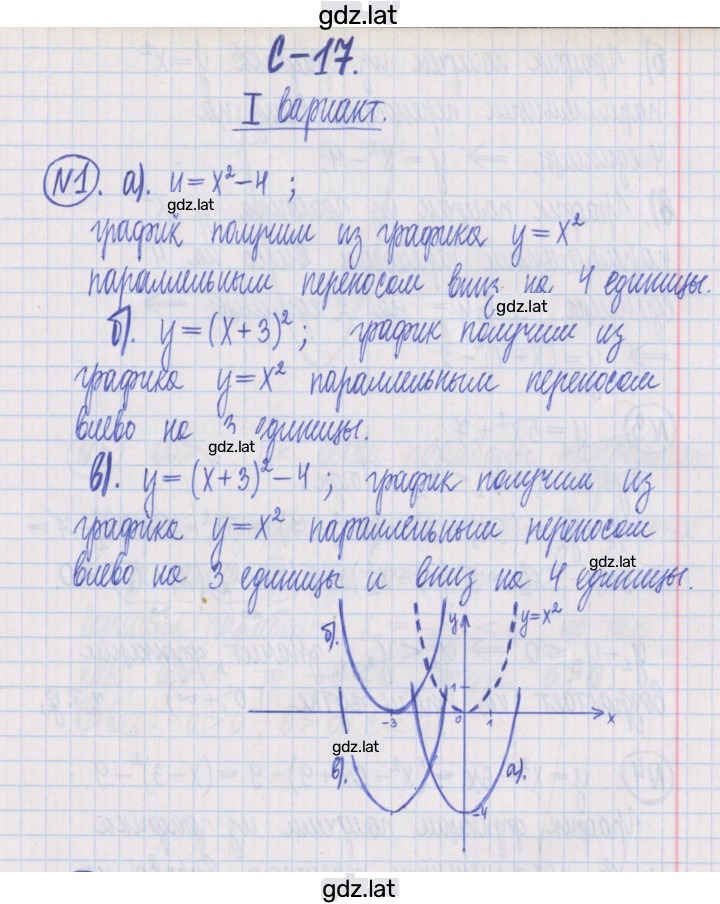 gdz.lat
С-17.
I вариант.
№1. а). y = x² - 4 ;
gdz.lat
график получим из графика y = x²
параллельным переносом вниз на 4 единицы.
gdz.lat
б). y = (x + 3)² ; график получим из
графика y = x² параллельным переносом
влево на 3 единицы.
gdz.lat
в). y = (x + 3)² - 4 ; график получим из
графика y = x² параллельным переносом
gdz.lat
влево на 3 единицы и вниз на 4 единицы.
б). y y = x²
1
-3 0 1 x
gdz.lat
в). а).
-4
gdz.lat